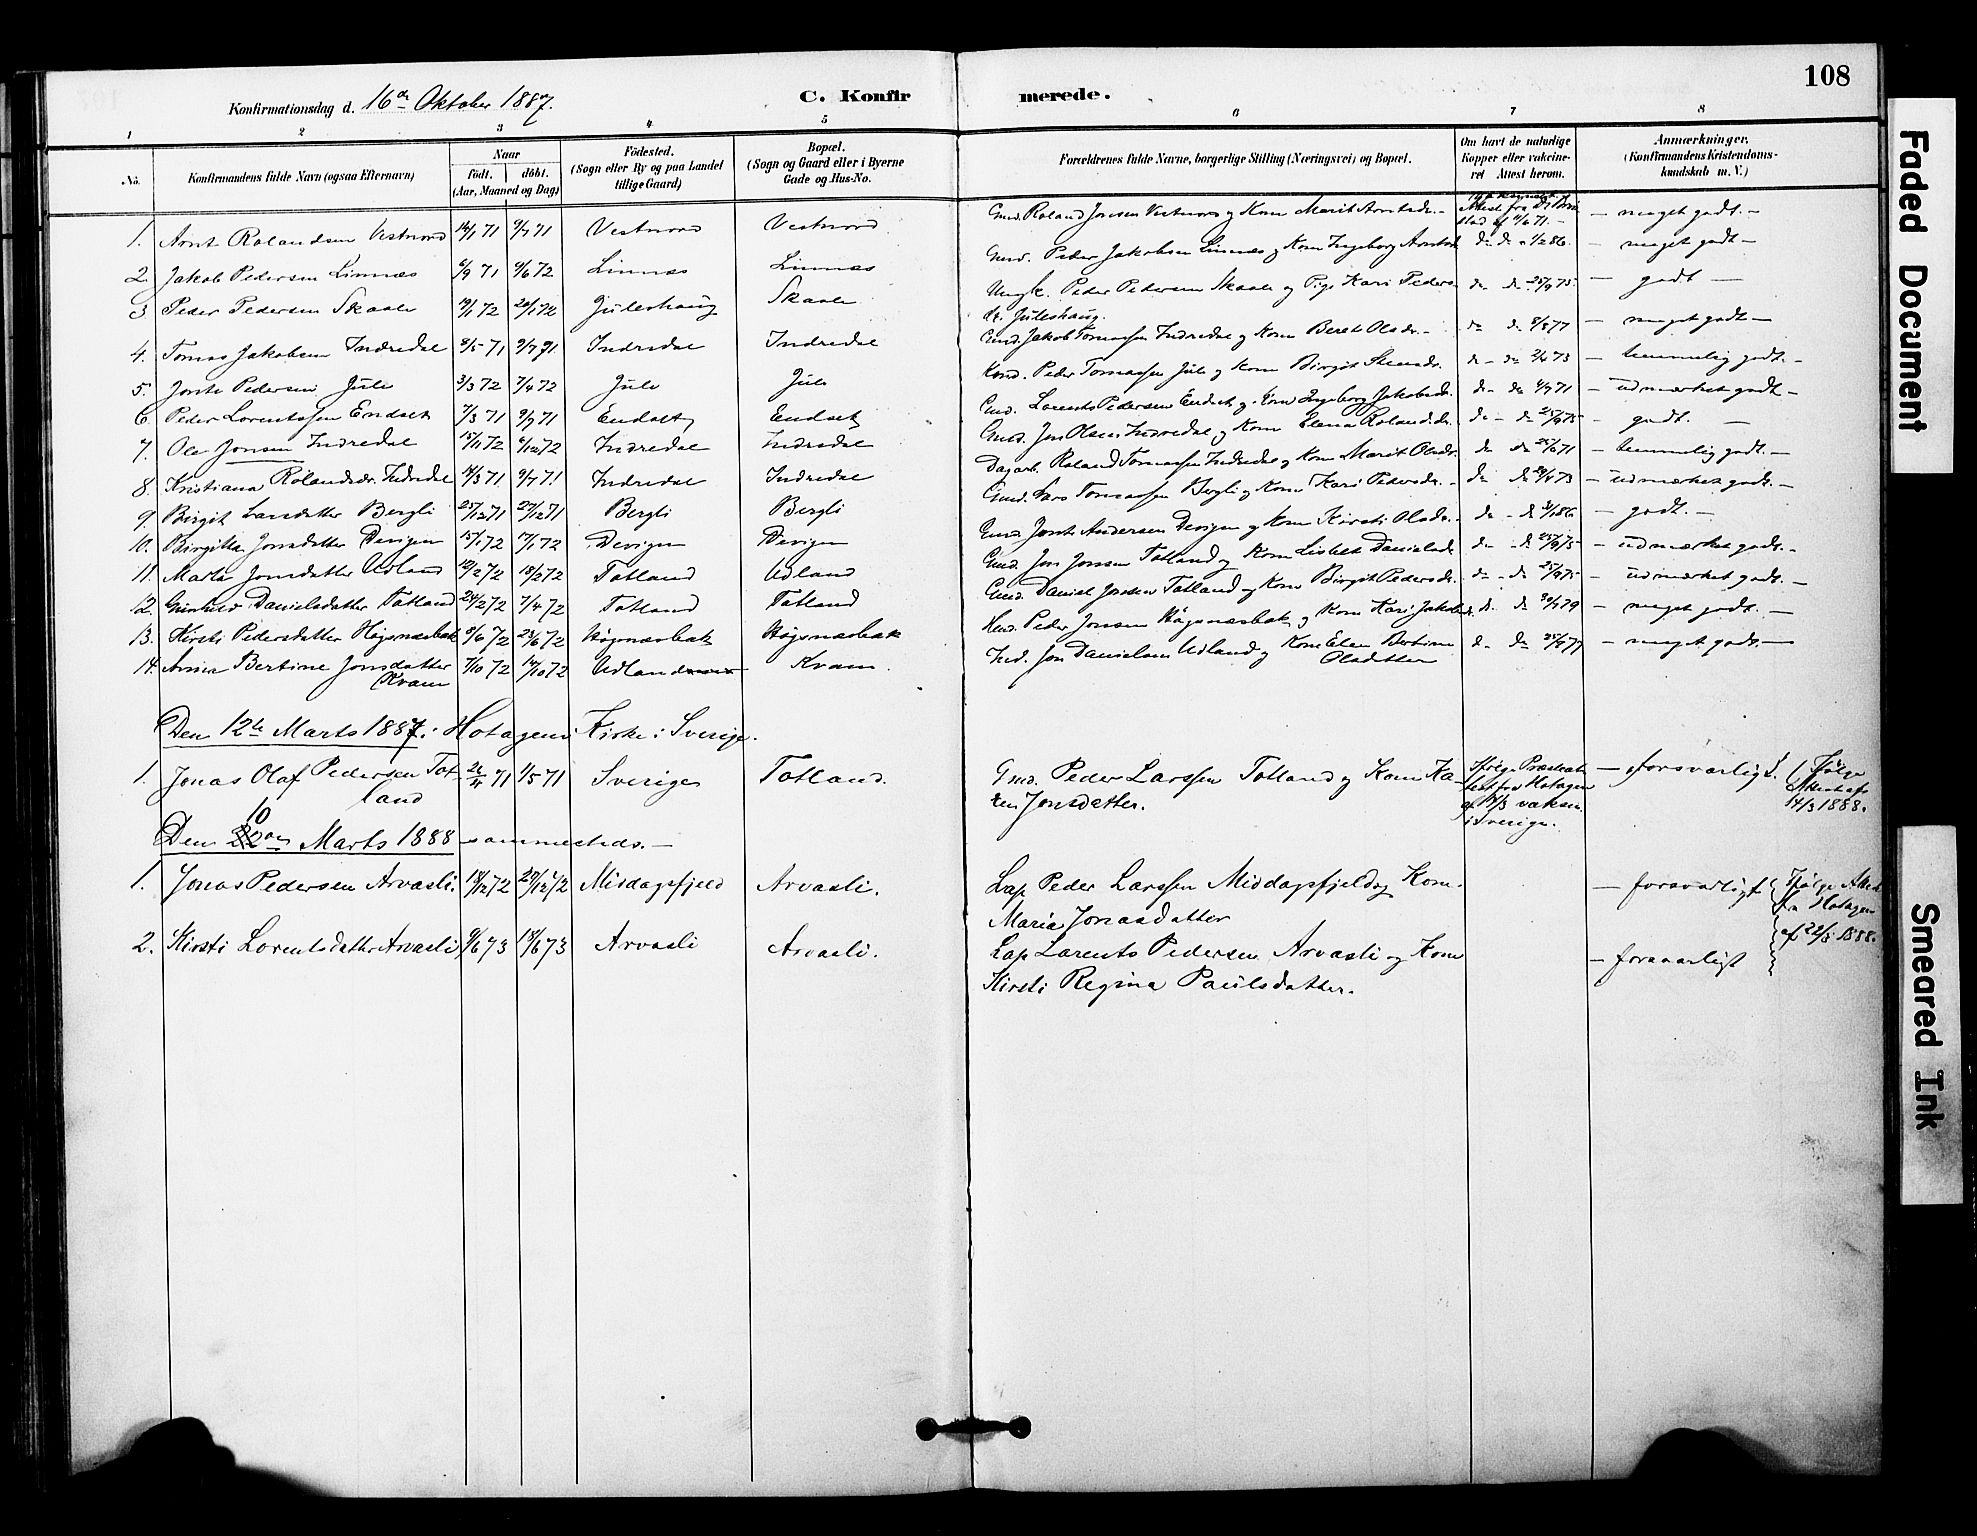 108
Konfirmationsdag d. 16de Oktober 1887.
C. Konfirmerede.
1 2 3 4 5 6 7 8
No.
Konfirmandens fulde Navn (ogsaa Efternavn)
Naar
födt. döbt.
(Aar, Maaned og Dag)
Födested.
(Sogn eller By og paa Landet
tillige Gaard)
Bopæl.
(Sogn og Gaard eller i Byerne
Gade og Hus-No.
Forældrenes fulde Navne, borgerlige Stilling (Næringsvei) og Bopæl.
Om havt de naturlige
Kopper eller vakcine-
ret Attest herom.
Anmærkninger.
(Konfirmandens Kristendoms-
kundskab m. V.)
1. Arnt Rolandsen Vestnord 71 9/7 71 Vestnord Vestnord Gmd. Roland Jonsen Vestnord og Kone Marit - meget godt. -
2. Jakob Pedersen Linnæs 6/9 71 9/6 72 Linnæs Linnæs Gmd. Peder Jakobsen Linnæs og Kone Ingeborg - meget godt -
3. Peder Pedersen Skaale 72 72 Juleshaug Skaale Ungk. Peder Pedersen Skaale og Pige Kari Peders-
dr. Juleshaug. do do 25/9 75. - godt -
4. Tomas Jakobsen Indredal 8/5 71 9/7 71 Indredal Indredal Gmd. Jakob Tomassen Indredal og Kone Beret Olsdr. - do do 8/8 77 - meget godt -
5. Jonte Pedersen Jule 3/3 72 7/4 72 Jule Jule Peder Tomassen Jule og Kone Birgit - temmelig godt. -
6. Peder Lorentssen Endset 7/3 71 9/7 71 Endset Endset Gmd. Lorents Pedersen Endset og Kone Ingeborg Jakobsdr. - udmærket godt -
7. Ole Jonsen Indredal 15/11 72 9/12 72 Indredal Indredal Gmd. Jon Olsen Indredal og Kone Elena Rolandsdr. do - do 25/9 75 - godt. -
8. Kristiana Rolandsdr. Indredal 14/3 71 9/7 71 Indredal Indredal Dagarb. Roland Tomassen Indredal og Kone Marit Olsdr. - temmelig godt. -
9. Birgit Larsdatter Bergli 25/12 71 27/12 71 Bergli Bergli Gmd. Lars Tomassen Bergli og Kone Kari Pedersdr. - udmærket godt. -
10. Birgitta Jonsdatter Devigen 15/1 72 17/1 72 Devigen Devigen Gmd. Jont Andersen Devigen og Kone Kirsti Olsdr. - godt. -
11. Marta Jonsdatter Udland 12/2 72 18/2 72 Totland Udland Gmd. Jon Jonsen Totland og Kone Lisbet Danielsdr. do - do 25/9 75 - udmærket godt. -
12. Gunhild Danielsdatter Totland 24/2 72 7/4 72 Totland Totland Gmd. Daniel Jonsen Totland og Kone Birgit Pedersdr. do - do 25/9 75 - udmærket godt. -
13. Kirsti Pedersdatter Høgsnæsbak 8/6 72 23/6 72 Høgsnæsbak Høgsnæsbak Hmd. Peder Jonsen Høgsnæsbak og Kone Kari Jakobsdr. do 30/7 79 - meget godt. -
14. Anna Bertine Jonsdatter
Kvam 7/10 72 14/10 72 Udland Kvam. Ind. Jon Danielsen Udland og Kone Elen Bertine
Olsdatter - meget godt -
Den 12te Marts 1887 i Hotagens Kirke i Sverige.
1. Jonas Olaf Pedersen Tot-
land 71 1/5 71 Sverige Totland. Gmd. Peder Larssen Totland og Kone Ka-
ren Jonsdatter. Ifølge Præsteat-
test fra Hotagen
af 14/3 vakcin.
i Sverige. - forsvarligt. (Ifølge
Attest af
14/3 1888.
Den Marts 1888 sammesteds. -
1. Jonas Pedersen Arvasli. 18/12 72 29/12 72 Middagsfjeld Arvasli. Lap Peder Larssen Middagsfjeld og Kone
Maria Jonasdatter - forsvarligt
Ifølge Attest
fra Hotagen
af 22/3 1888.
2. Kirsti Lorentsdatter Arvasli 9/6 73 18/6 73 Arvasli Arvasli. Lap Lorents Pedersen Arvasli og Kone
Kirsti Regina Paulsdatter. - forsvarligt
Faded Document
Smeared Ink